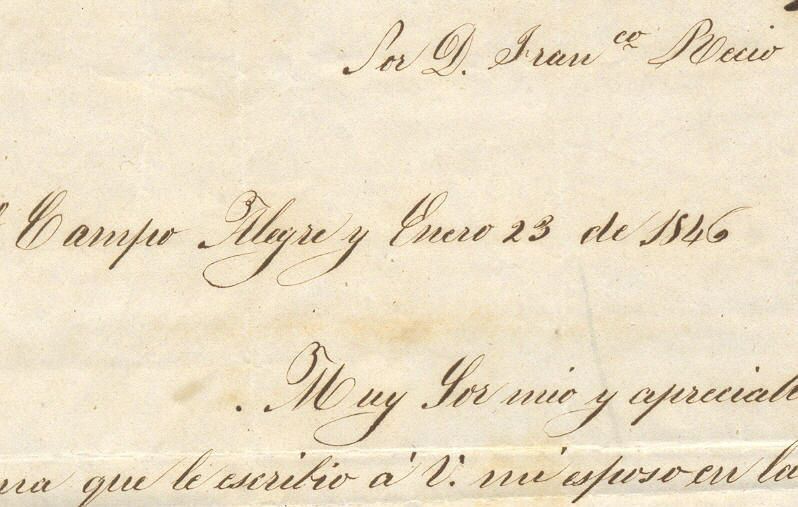 Sor D. Franco Recio
Campo Alegre y Enero 23 de 1846
Muy Sor mio y apreciab
que le escribio á V. mi esposo en la